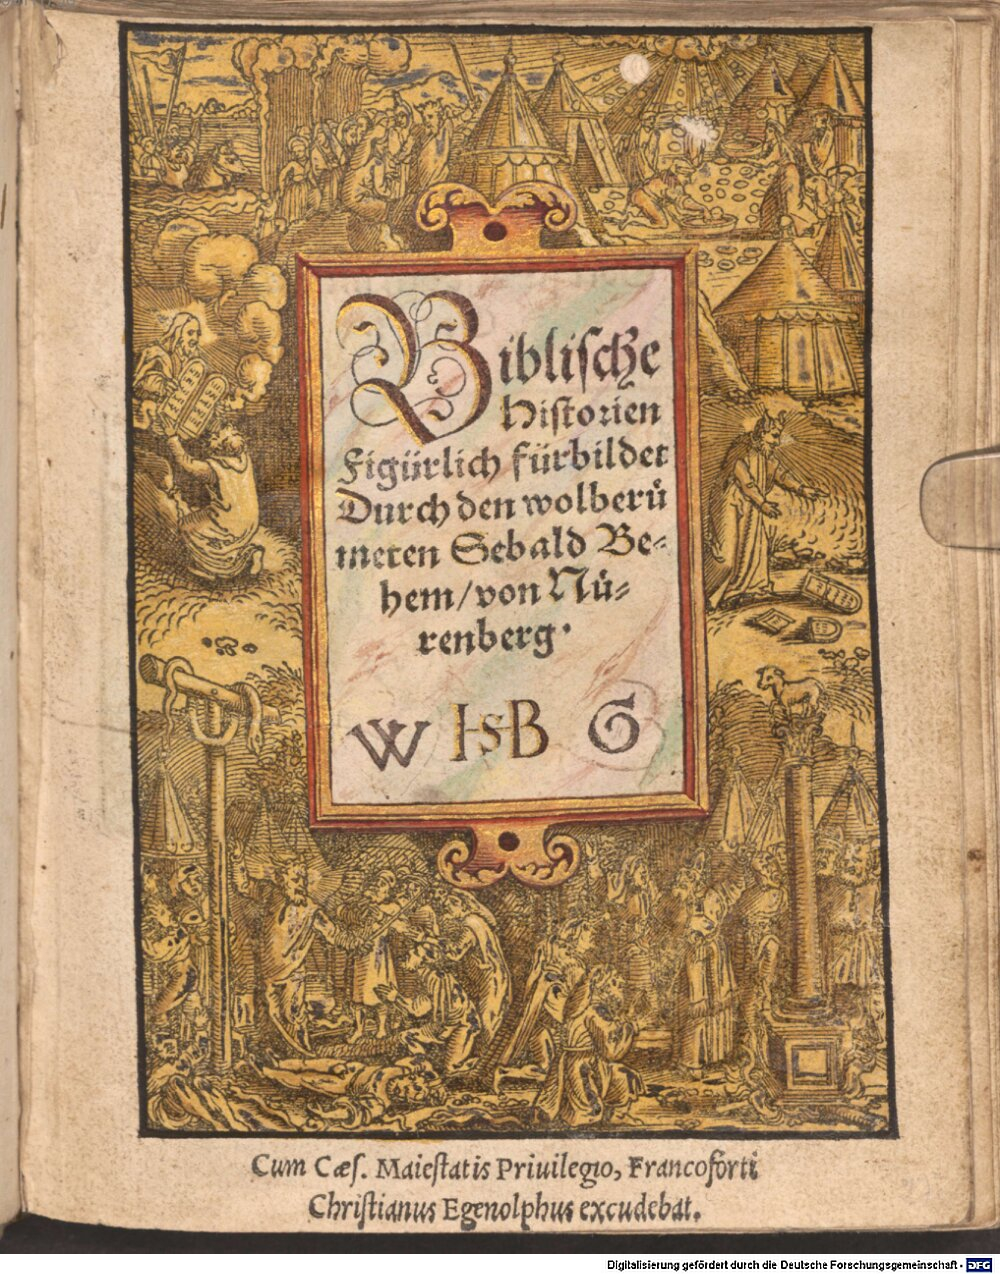 Biblische
Historien
Figürlich fürbildet
Durch den wolberů
meten Sebald Be⸗
hem/von Nů⸗
renberg.
W HSB G
Cum Cæſ. Maieſtatis Priuilegio, Francoforti
Chriſtianus Egenolphus excudebat.
Digitalisierung gefördert durch die Deutsche Forschungsgemeinschaft - DFG